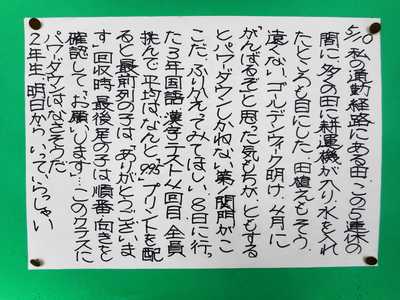 5/10 私の通勤経路にある田。この5連休の
間に、多くの田に耕運機が入り、水を入れ
たところも目にした。田植えもそう
遠くない。ゴールデンウィーク明け、4月に
「がんばるぞ」と思った気もちが、ともする
とパワーダウンしかねない第1関門がこ
こだ。ふりかえってみてほしい。8日に行っ
た3年国語漢字テスト4回目。全員
挑んで平均は、なんと、99%。プリントを配
ると最前列の子は、「ありがとうございま
す」。回収時、最後尾の子は「順番、向きを
確認して、お願いします」…このクラスに
パワーダウンはなさそうだ。
2年生、明日から、いっていらっしゃい